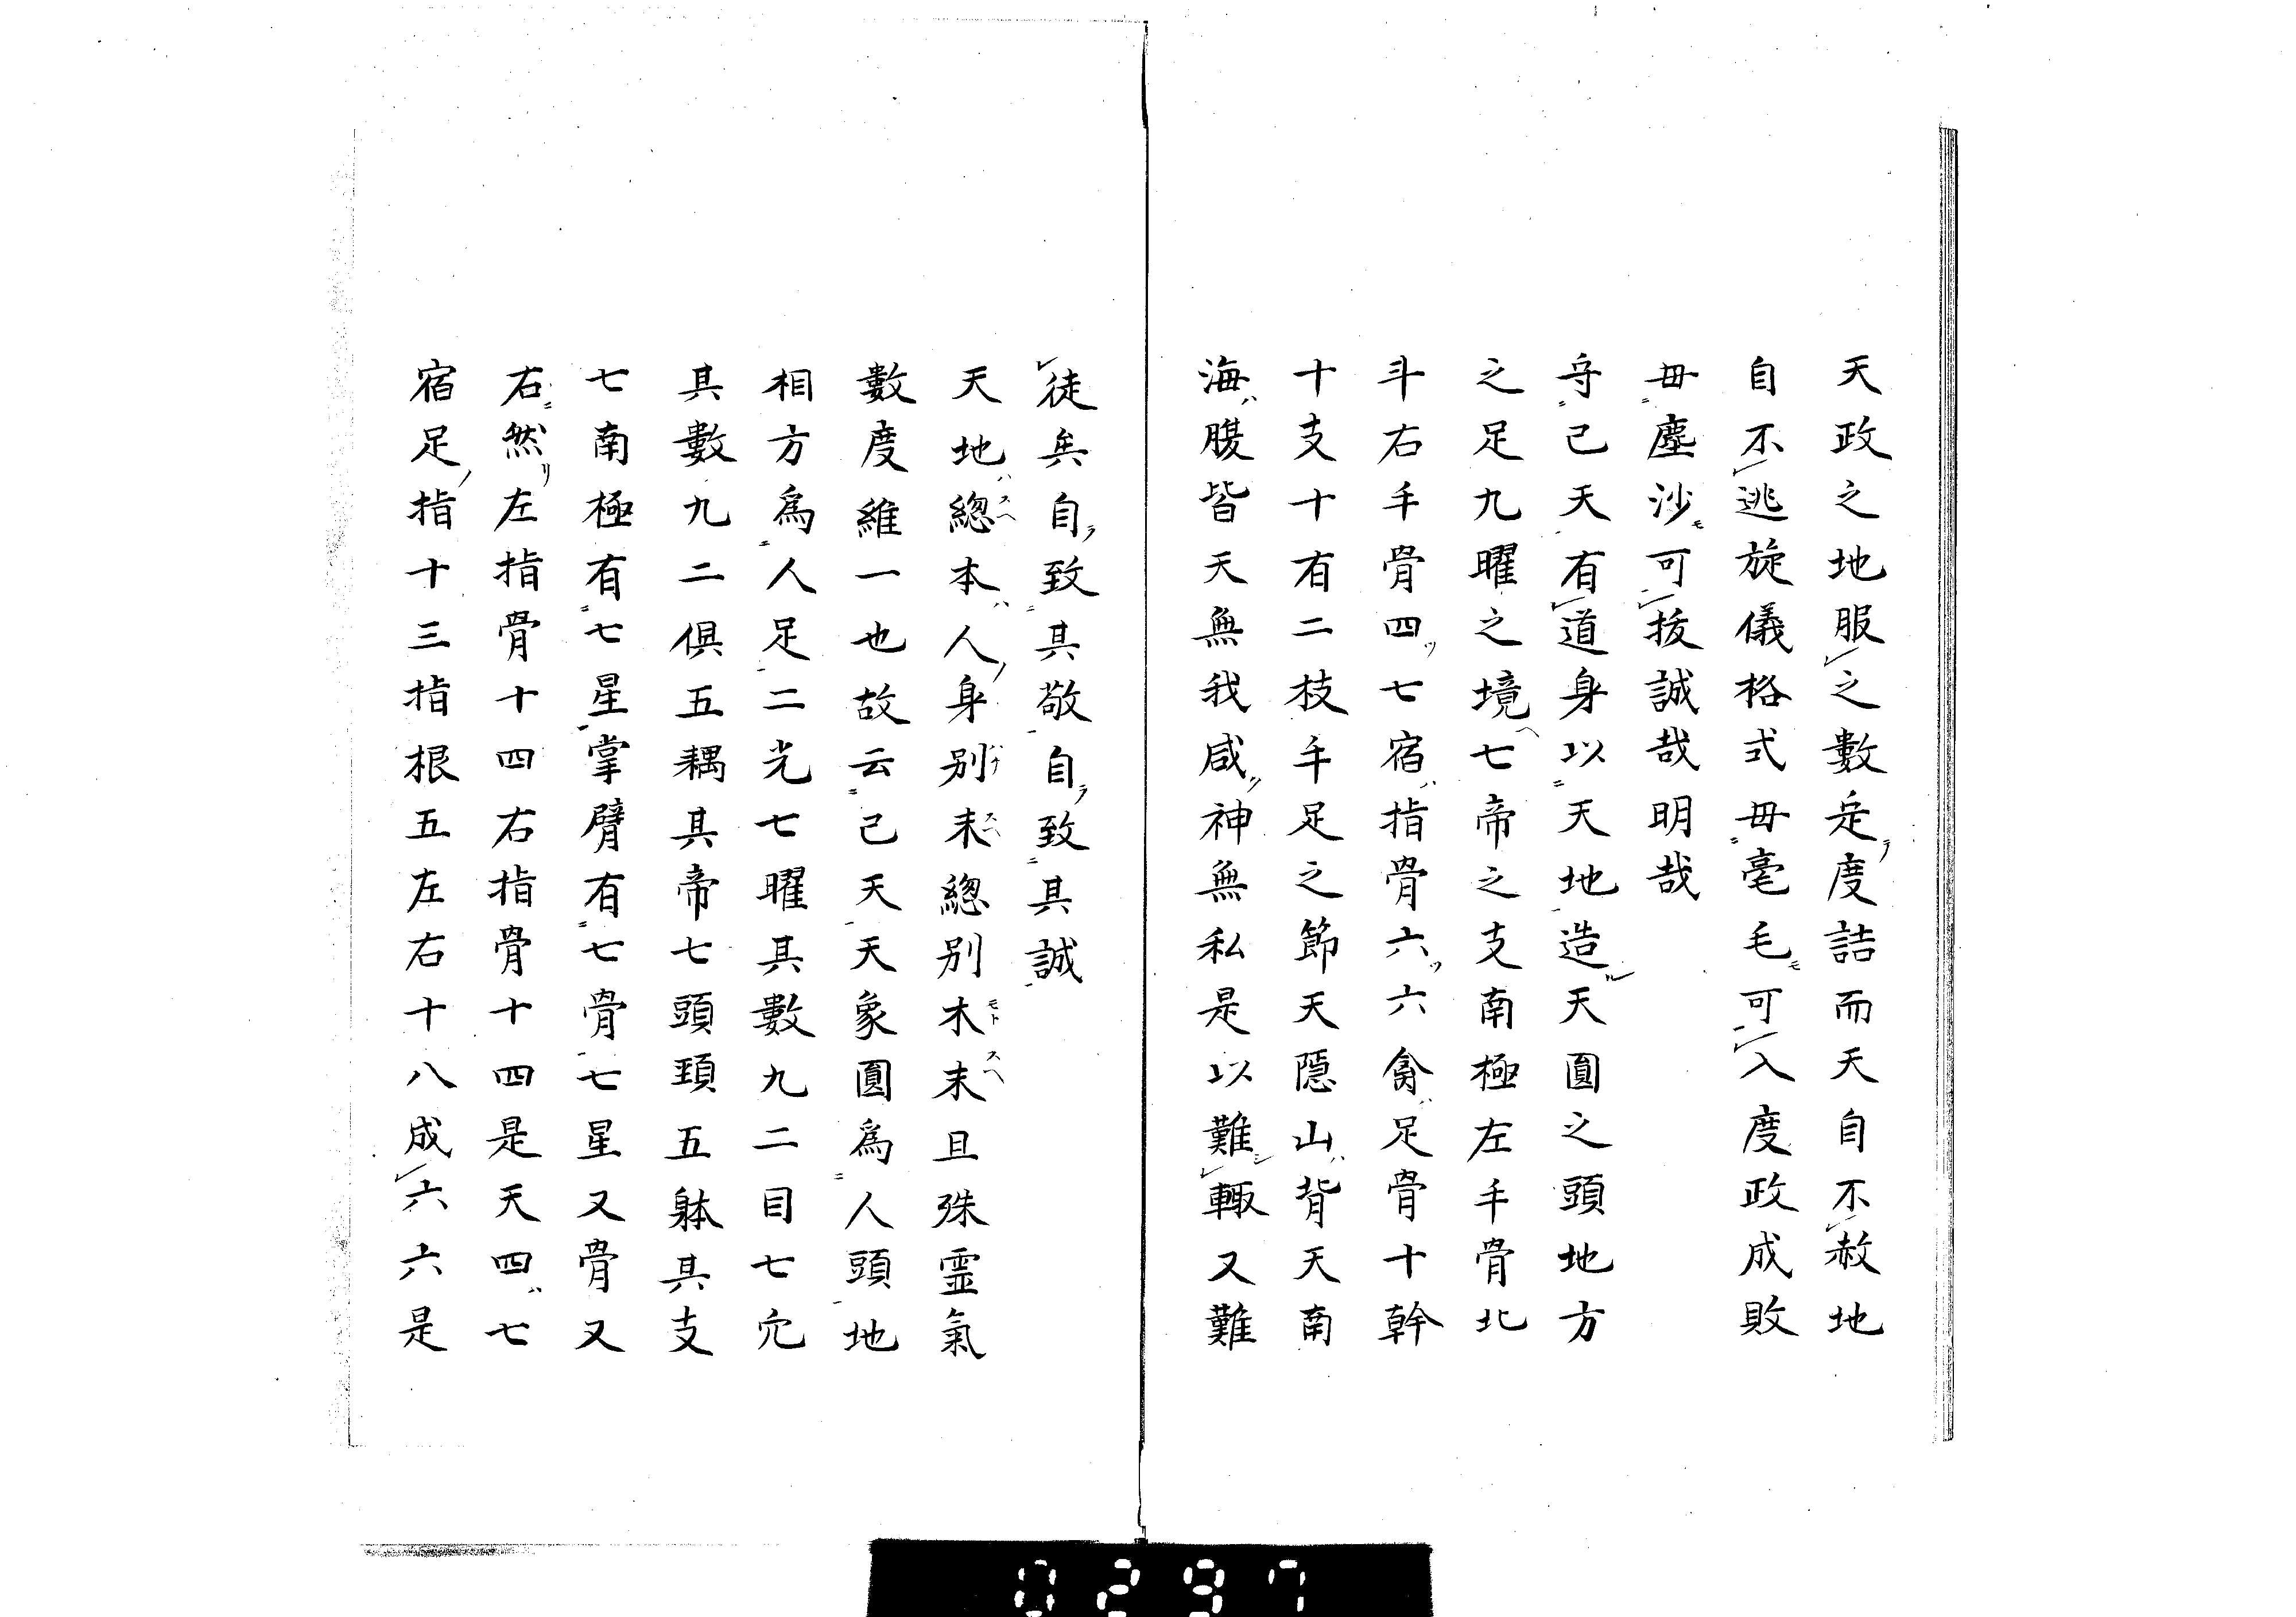 天政之地服之數定度詰而天自不赦地
自不逃旋儀格式毋毫毛可入度政成敗
毋塵沙可拔誠哉明哉
守己天有道身以天地造天圓之頭地方
之足九曜之境七帝之支南極左手骨北
斗右手骨四七宿指骨六六禽足骨十幹
十支十有二枝手足之節天隱山背天南
海腹皆天無我咸神無私是以難輙又難
徒矣自致其敬自致其誠
天地總本人身別末總別木末旦殊霊氣
數度維一也故云己天天象圓為人頭地
相方為人足二光七曜其數九二目七穴
其數九二俱五耦其帝七頭頚五躰其支
七南極有七星掌臂有七骨七星又骨又
右然左指骨十四右指骨十四是天四七
宿足指十三指根五左右十八成六六是
0297